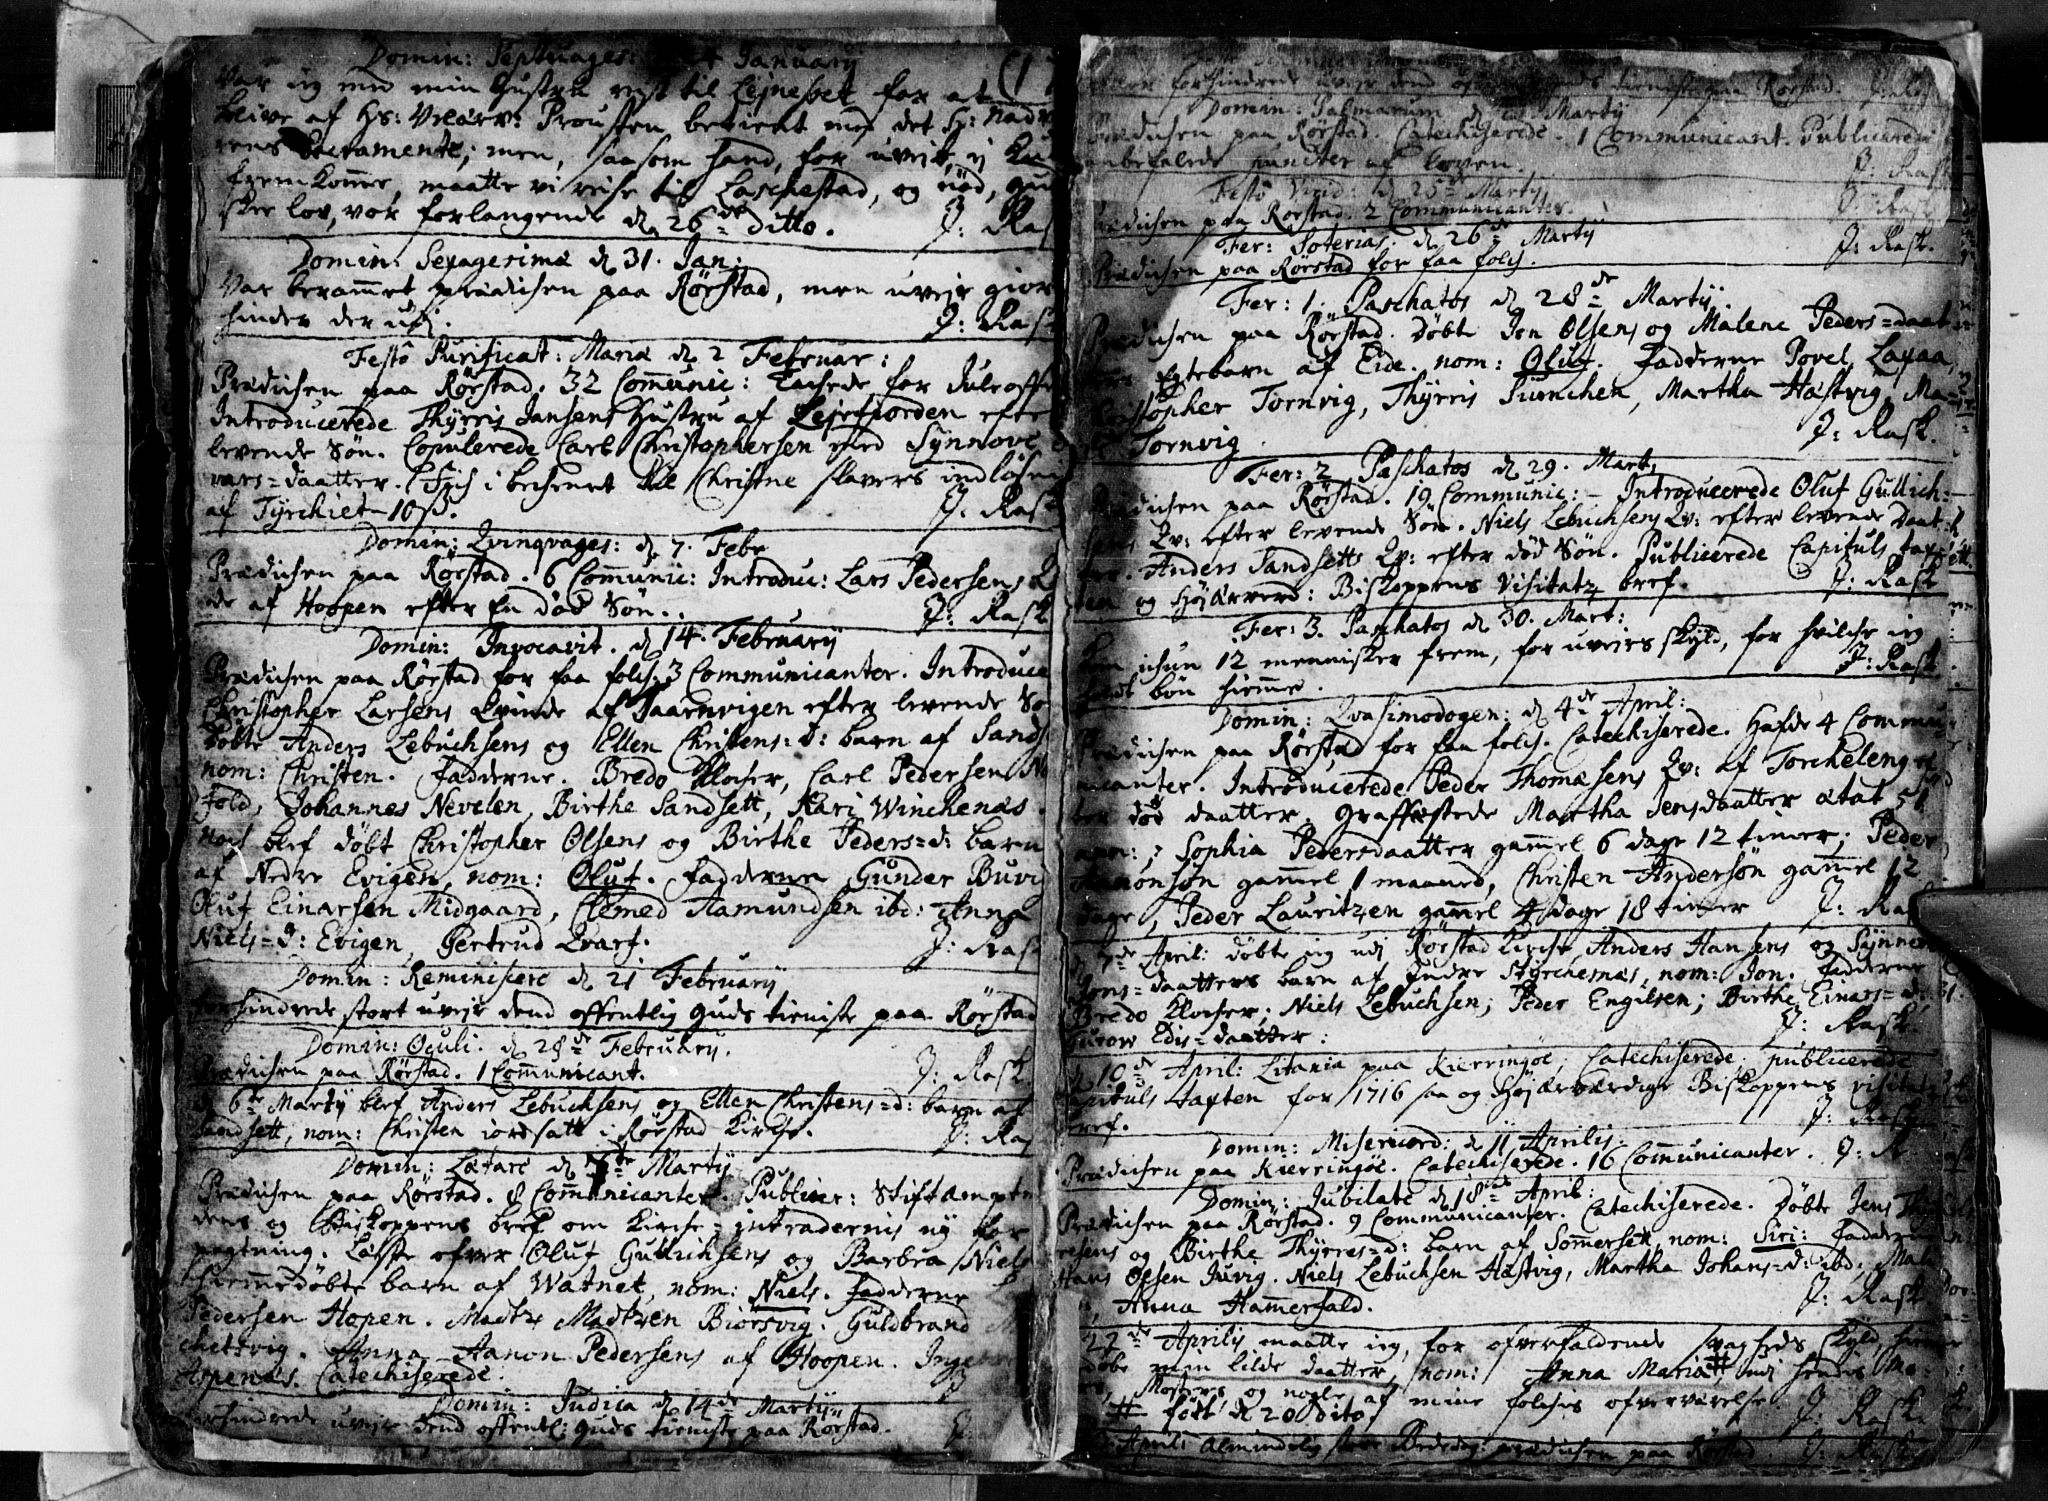 Domin: Septuages: 24 January
Var ieg med min Hustru rejst til Lejnesset for at
blive af Hr: Velærv: Prousten betient med det H: Nadv
rens Sacramente; men, saasom hand, for uvejr, ej kun
fremkomme, maatte vi reise til Laschestad, og nød, Gud
skee lov, vor forlangende d 26de ditto. J: Rask
Domin: Sexagesimæ d 31. Jan:
Var berammet prædichen paa Rörstad, men uvejr gior
hinder der udj. J: Rask
Festô Purificat: Mariæ d 2 Februar:
Prædichen paa Rörstad. 32 Communic: Tachede for Juleoffer
Introducerede Thÿrris Jansens Hustru af Lejrfiorden efter
levende Sön. Copulerede Carl Christophersen med Sÿnnove
vars=daatter. Fich i bechenet til Christne slavers indlösen
af Tÿrchiet 10 ß. J: Rask
Domin: Qvinqvages: d 7. Febr
Prædichen paa Rörstad. 6 Communic: Introduc: Lars Pedersens Q
de af Hoopen efter En död Sön. J: Rask
Domin: Invocavit. d 14. Februarÿ
Prædichen paa Rörstad for faa folch. 3 Communicanter. Introduce
Christopher Larsens Qvinde af Taarnvigen efter levende Sö
Döbte Anders Lebuchsens og Ellen Christens=d: barn af Sands
nom: Christen. Fadderne. Bredo Klocher, Carl Pedersen No
Fold, Johannes Nevelen, Birthe Sandsett, Kari Winchenæs.
Noch blef döbt Christopher Olsens og Birthe Peders=d: barn
af Nedre Evigen, nom: Oluf. Fadderne Gunder Buvi
Oluf Einarsen Midgaard, Clemed Aamundsen ibd: Anna
Niels=d: Evigen, Gertrud Qvarf. J: Rask
Domin: Reminiscere d 21 Februarÿ
forhindrede stort uvejr dend offentlig Guds tieniste paa Rörstad
Domin: Oculi. d 28de Februarÿ.
Prædichen paa Rörstad. 1 Communicant. J: Rask
d 6te Martÿ blef Anders Lebuchsens og Ellen Christens=d: barn af
Sandsett, nom: Christen iordsatt i Rörstad Kirche. J: Ras
Domin: Lætare d 7de Martÿ
Prædichen paa Rörstad. 8 Communicanter. Publicer: Stiftamptm
dens og Biskoppens bref om Kirche=intradernis nÿ for
pagtning. Læste ofver Oluf Gullichsens og Barbra Niels
hiemmedöbte barn af Watnet, nom: Niels. Fadderne
Pedersen Hopen. Madtz Madtzen Biörsvig. Guldbrand
chettvig. Anna Aanon Pedersens af Hoopen. Ingebor
Aspenæs. Catechiserede. J
Domin: Judica d 14de Martÿ
forhindrede uvejr dend offentl: Guds tieniste paa Rörstad. J:
forhindrede uvejr dend offentlig Guds tieniste paa Rörstad. J: Rask
Domin: Palmarum d Martÿ
Prædichen paa Rörstad. Catechiserede. 1 Communicant. Publicerede
anbefalede puncter af loven. J: Rask
Festô Vird: d 25de Martÿ
Prædichen paa Rörstad. 2 Communicanter. J: Rask
Fer: Soterias: d 26de Martÿ
Prædichen paa Rörstad for faa folch. J: Rask.
Fer: 1. Paschatos d 28de Martÿ.
Prædichen paa Rörstad. Döbte Jon Olsens og Malene Peders=daat
Egtebarn af Eide. nom: Oluf. Fadderne Povel Laxaa,
Christopher Tornvig, Thÿrris Sunchen, Martha Hæstvig, Ma=
Tornvig. J: Rask.
Fer: 2 Paschatos d 29. Mart:
Prædichen paa Rörstad. 19 Communic: - Introducerede Oluf Gullich=
sens Qv: efter levende Sön. Niels Lebuchsens Qv: efter levende Daat
ter. Anders Sandsetts Qv: efter död Sön. Publicerede Capituls tax=
ten og Höjærverd: Biskoppens Visitatz bref. J: Rask
Fer: 3. Paschatos d 30. Mart:
Kom ichun 12 mennisker frem, for uvejrs skyld, for hvilche ieg
holt bön hiemme. J: Rask
Domin: Qvasimodogen: d 4de April:
Prædichen paa Rörstad for faa folch. Catechiserede. Hafde 4 Commu
nicanter. Introducerede Peder Thomæsens Qv: af Torchelenget
ter död daatter. Graffæstede Martha Jensdaatter ætat 51
ann: ; Sophia Pedersdaatter gammel 6 dage 12 timer; Peder
Aanonsön gammel 1 maaned, Christen Andersön gammel 12
dage, Peder Lauritzen gammel 4 dage 18 timer J: Rask
d 7de April: döbte ieg udj Rörstad Kirche, Anders Hansens og Sÿnneve
Jons=daatters barn af Indre Stÿrchesnæs, nom: Jon. Fadderne
Bredo Klocher; Niels Lebuchsen; Peder Engilsen; Birthe Einars=d:
Gurow Edis=daatter: J: Rask.
d 10de April: Litania paa Kierringöe, Catechiserede. publicerede
Capituls taxten for 1716 saa og Höjærværdige Biskoppens visitatz
bref. J: Rask
Domin: Misericord: d 11 Aprilis.
Prædichen paa Kierringöe. Catechiserede. 16 Communicanter. J: R
Domin: Jubilate d 18de April:
Prædichen paa Rörstad. 9 Communicanter. Catechiserede. Döbte Jens Thÿr
resens og Birthe Thÿrres=d: barn af Sommersett nom: Siri: Fadderne
Hans Olsen Juvig. Niels Lebuchsen Hæstvig, Martha Johans=d: ibd, Male
Anna Hammerfald. J: Rask
22de Aprilis maatte ieg, for ofverfaldende svagheds skyld, hiemme
döbe min lilde daatter, nom: Anna Maria # udi hendes Mo=
Mosters og nogle af mine folchis ofverværelse. J: Rask.
# föd d 20 dito
April: Almindelig store Bededag, prædichen paa Rörstad. J: Rask